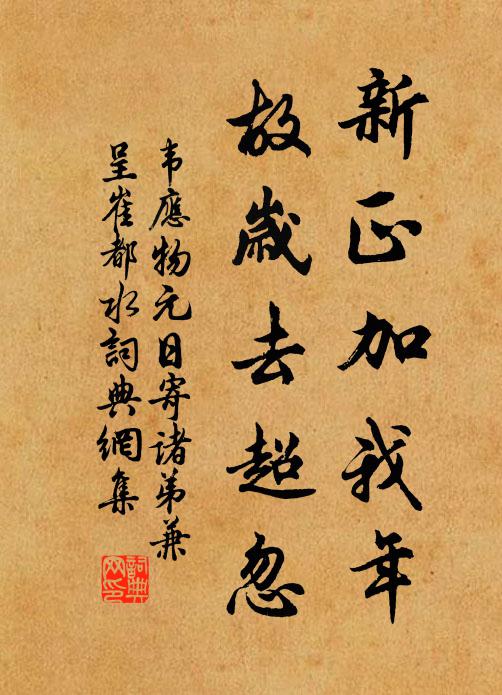 新正加我年
故歲去超忽
韦應物元日寄诸弟兼
呈崔都水詞典網集
詞典網印